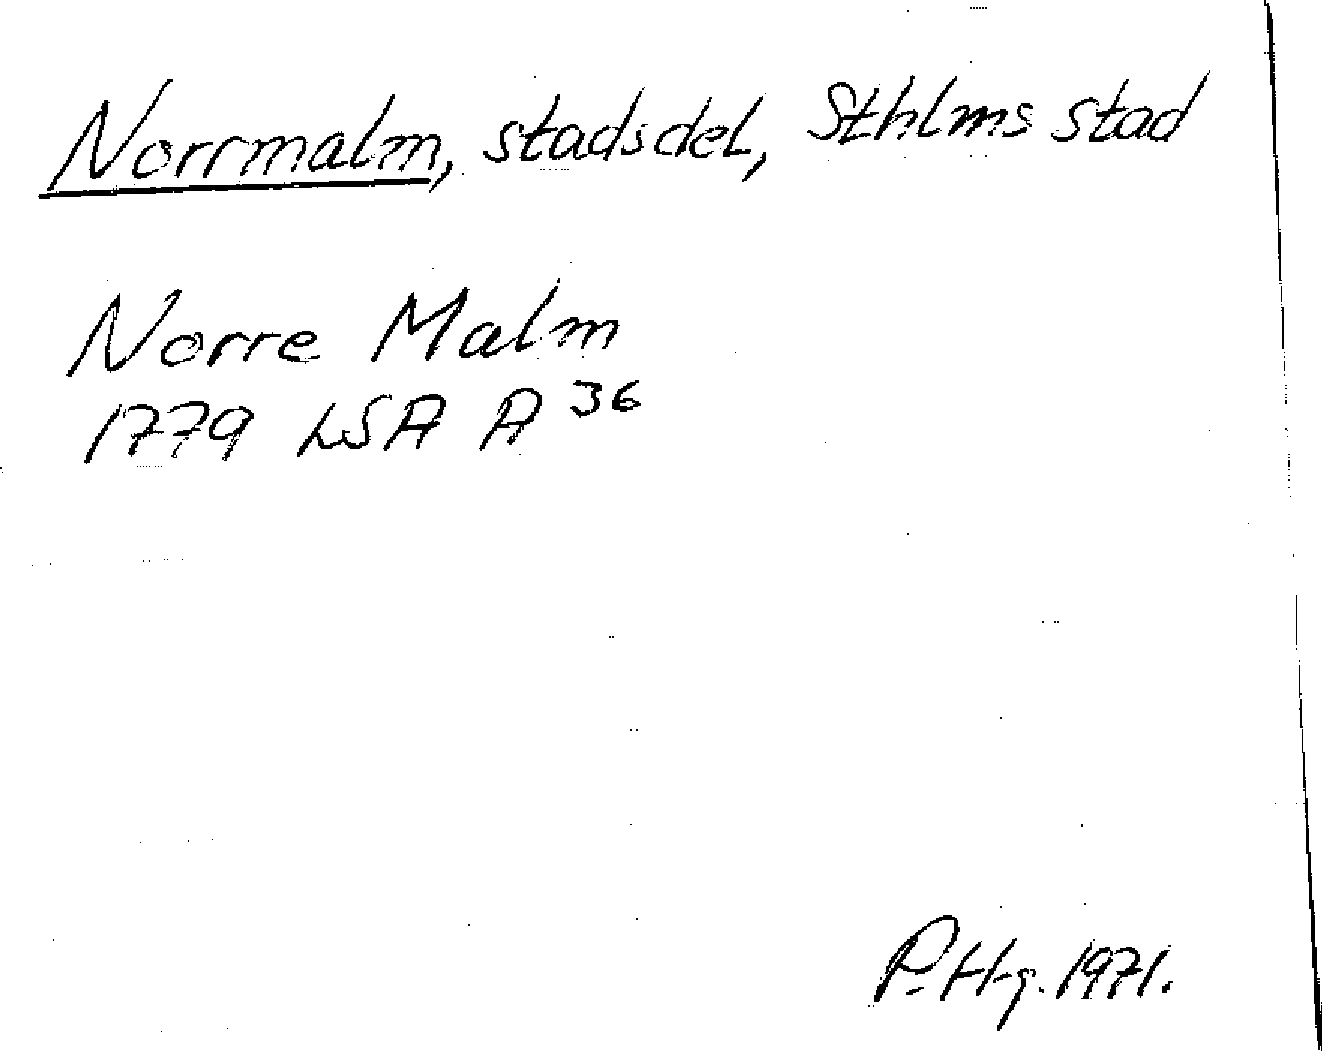 Norrmalm, stadsdel, Sthlms stad
Norre Malm
1779 LSA A 36
P. Hg. 1971.